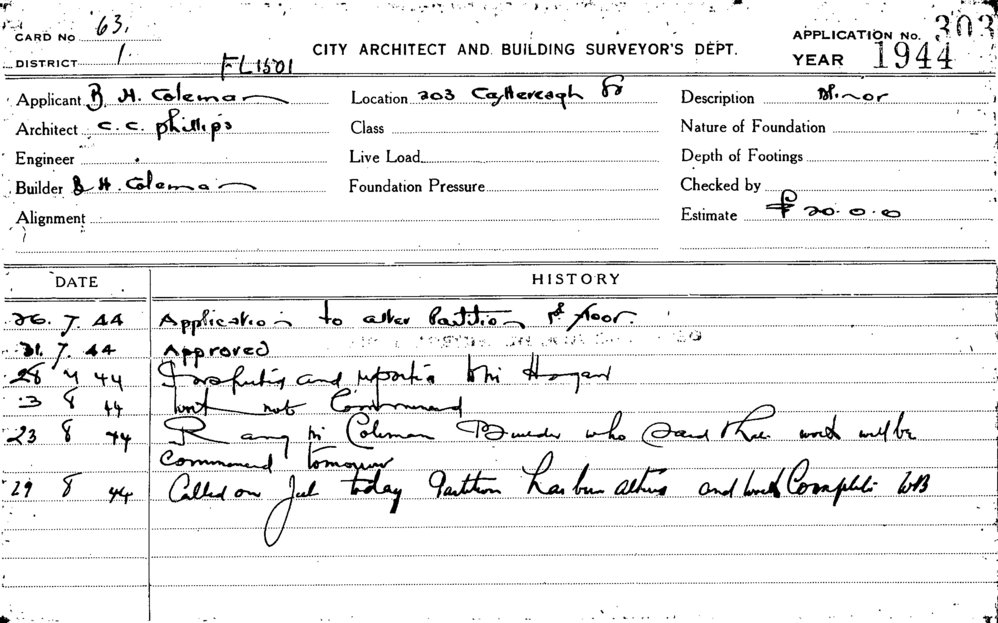 CARD No 63.
DISTRICT 1
FL1501
CITY ARCHITECT AND BUILDING SURVEYOR'S DEPT.
APPLICATION No. 303
YEAR 1944
Applicant B H. Coleman
Location 203 Castlereagh St
Description Minor
Architect C. C. Phillips
Class
Nature of Foundation
Engineer
Live Load
Depth of Footings
Builder B H. Coleman
Foundation Pressure
Checked by
Alignment
Estimate £ 20.0.0
DATE HISTORY
26. 7. 44 Application to alter Partition 1st floor.
31. 7. 44 Approved
28 7 44 Inspecting and reporting Mr Hogan
3 8 44 Work not Commenced
23 8 44 Rang Mr Coleman Builder who said the work will be
commenced tomorrow
29 8 44 Called on Job today Partition has been and work Complete WB